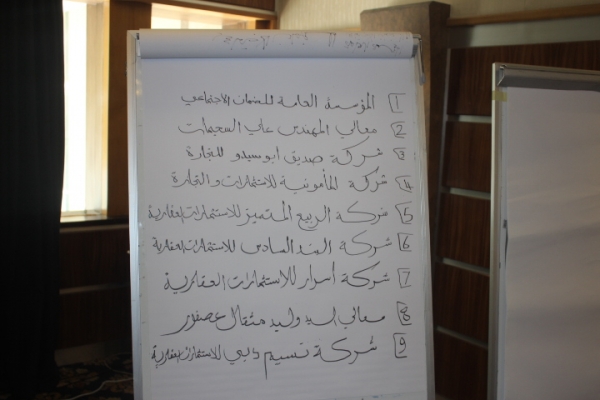 1 المؤسسة العامة للضمان الاجتماعي
2 معالي المهندس علي السحيمات
3 شركة صديق ابو سيدو للتجارة
4 شركة المأمونية للاستثمارات والتجارة
5 شركة الربيع المتميز للاستثمارات العقارية
6 شركة السادس للاستثمارات العقارية
7 شركة أسرار للاستثمارات العقارية
8 معالي السيد وليد مثقال عصفور
9 شركة نسيم دبي للاستثمارات العقارية